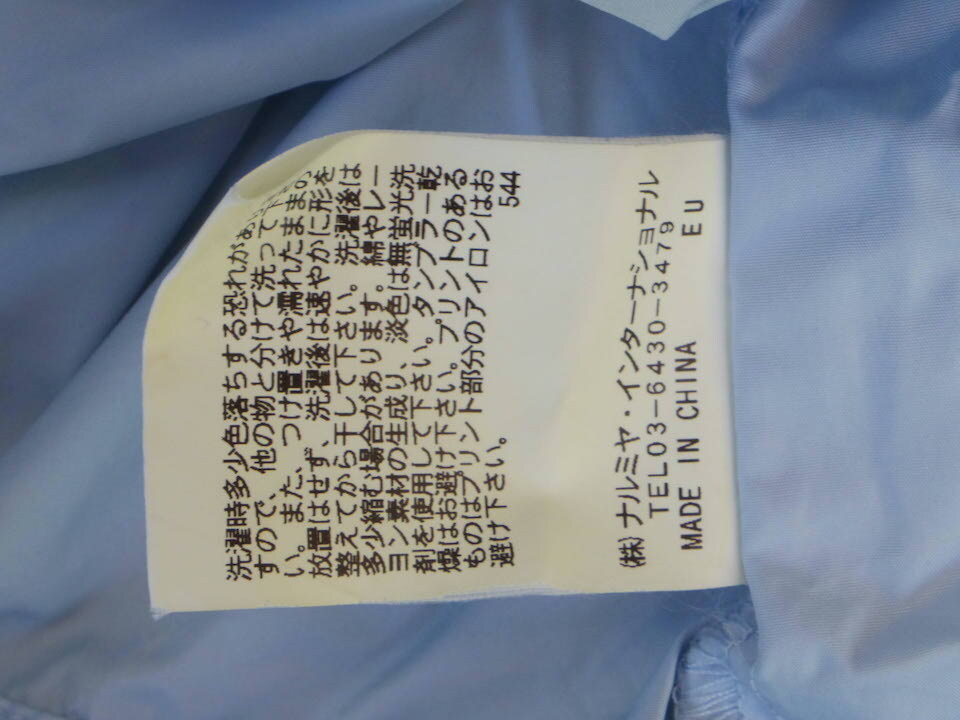 洗濯時多少色落ちする恐れがあ
すので、他の物と分けて洗って
い。また、つけ置きや濡れたままの
放置はせず、洗濯後は速やかに形を
整えてから干して下さい。洗濯後は
多少縮む場合があります。綿やレー
ヨン素材の生成り、淡色は無蛍光洗
剤を使用して下さい。タンブラー乾
燥はお避け下さい。プリントのある
ものはプリント部分のアイロンはお
避け下さい。 544
㈱ナルミヤ・インターナショナル
TEL03-6430-3479
MADE IN CHINA EU